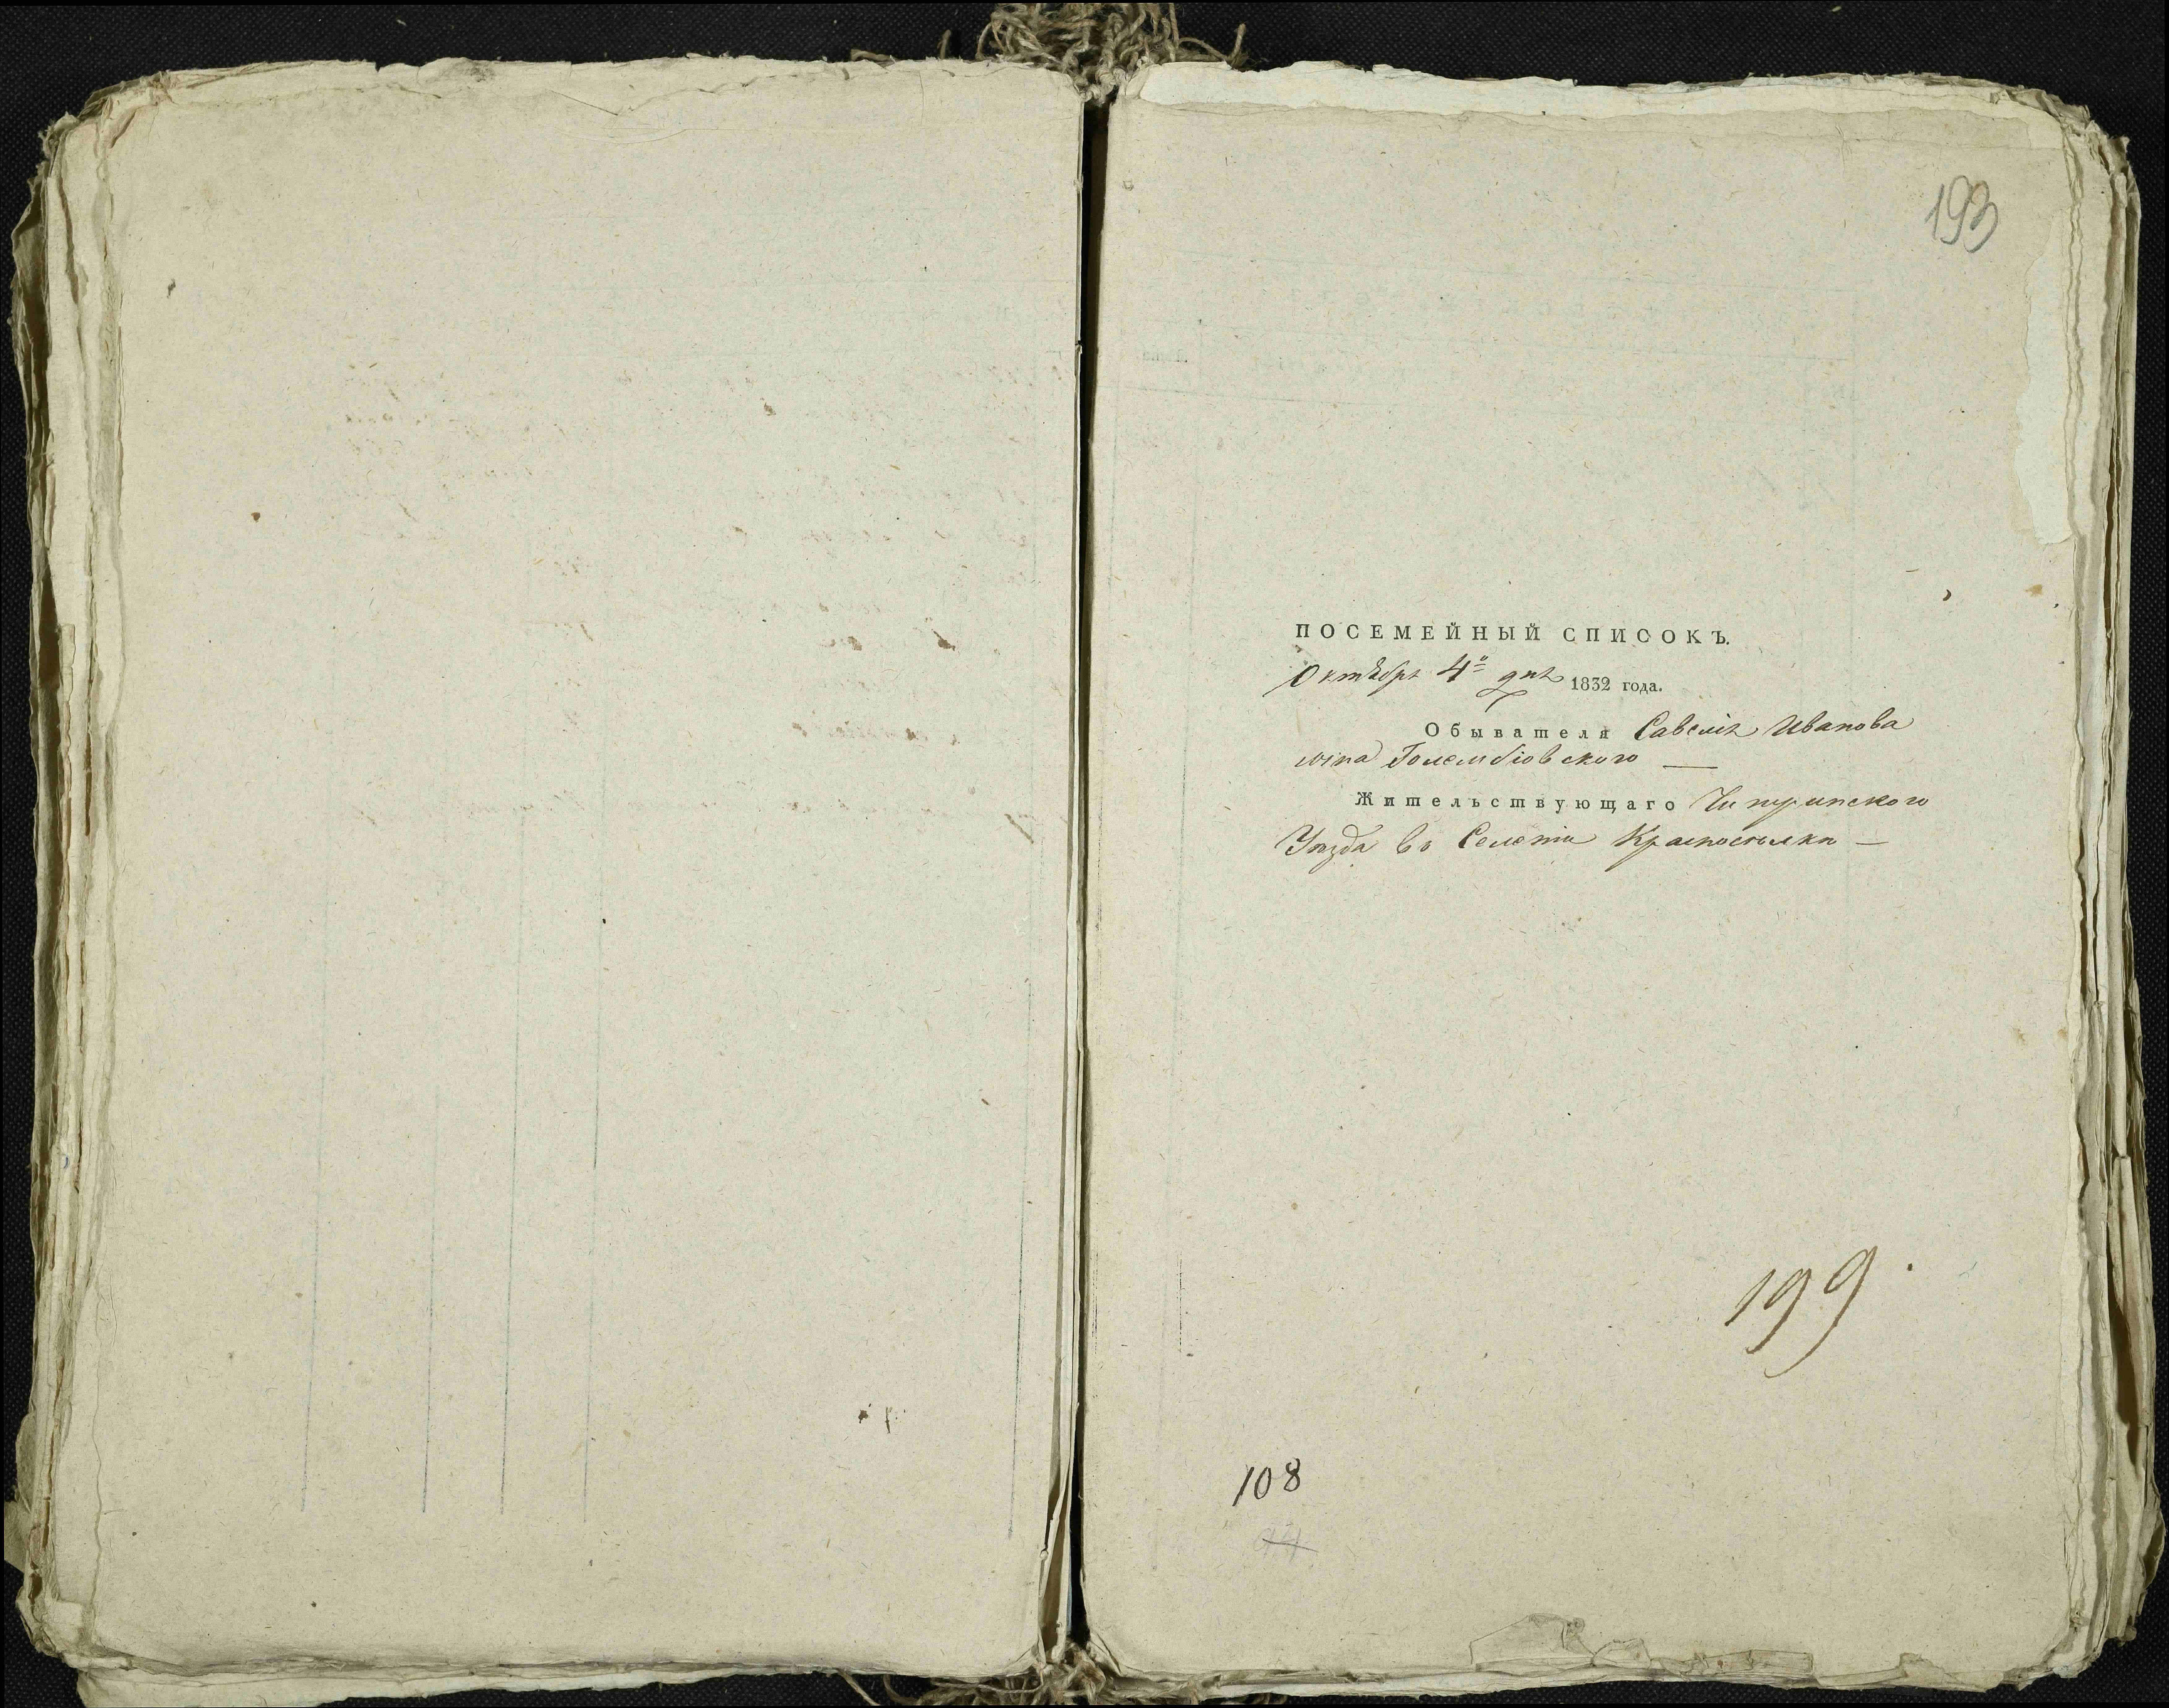 193
ПОСЕМЕЙНЫЙ СПИСОКЪ.
Октября 4" дня 1832 года.
Обывателя Савелія Иванова
сына Голембіовского —
Жительствующаго Чигиринского
Уезда въ Селеніи Красноселки —
199.
108